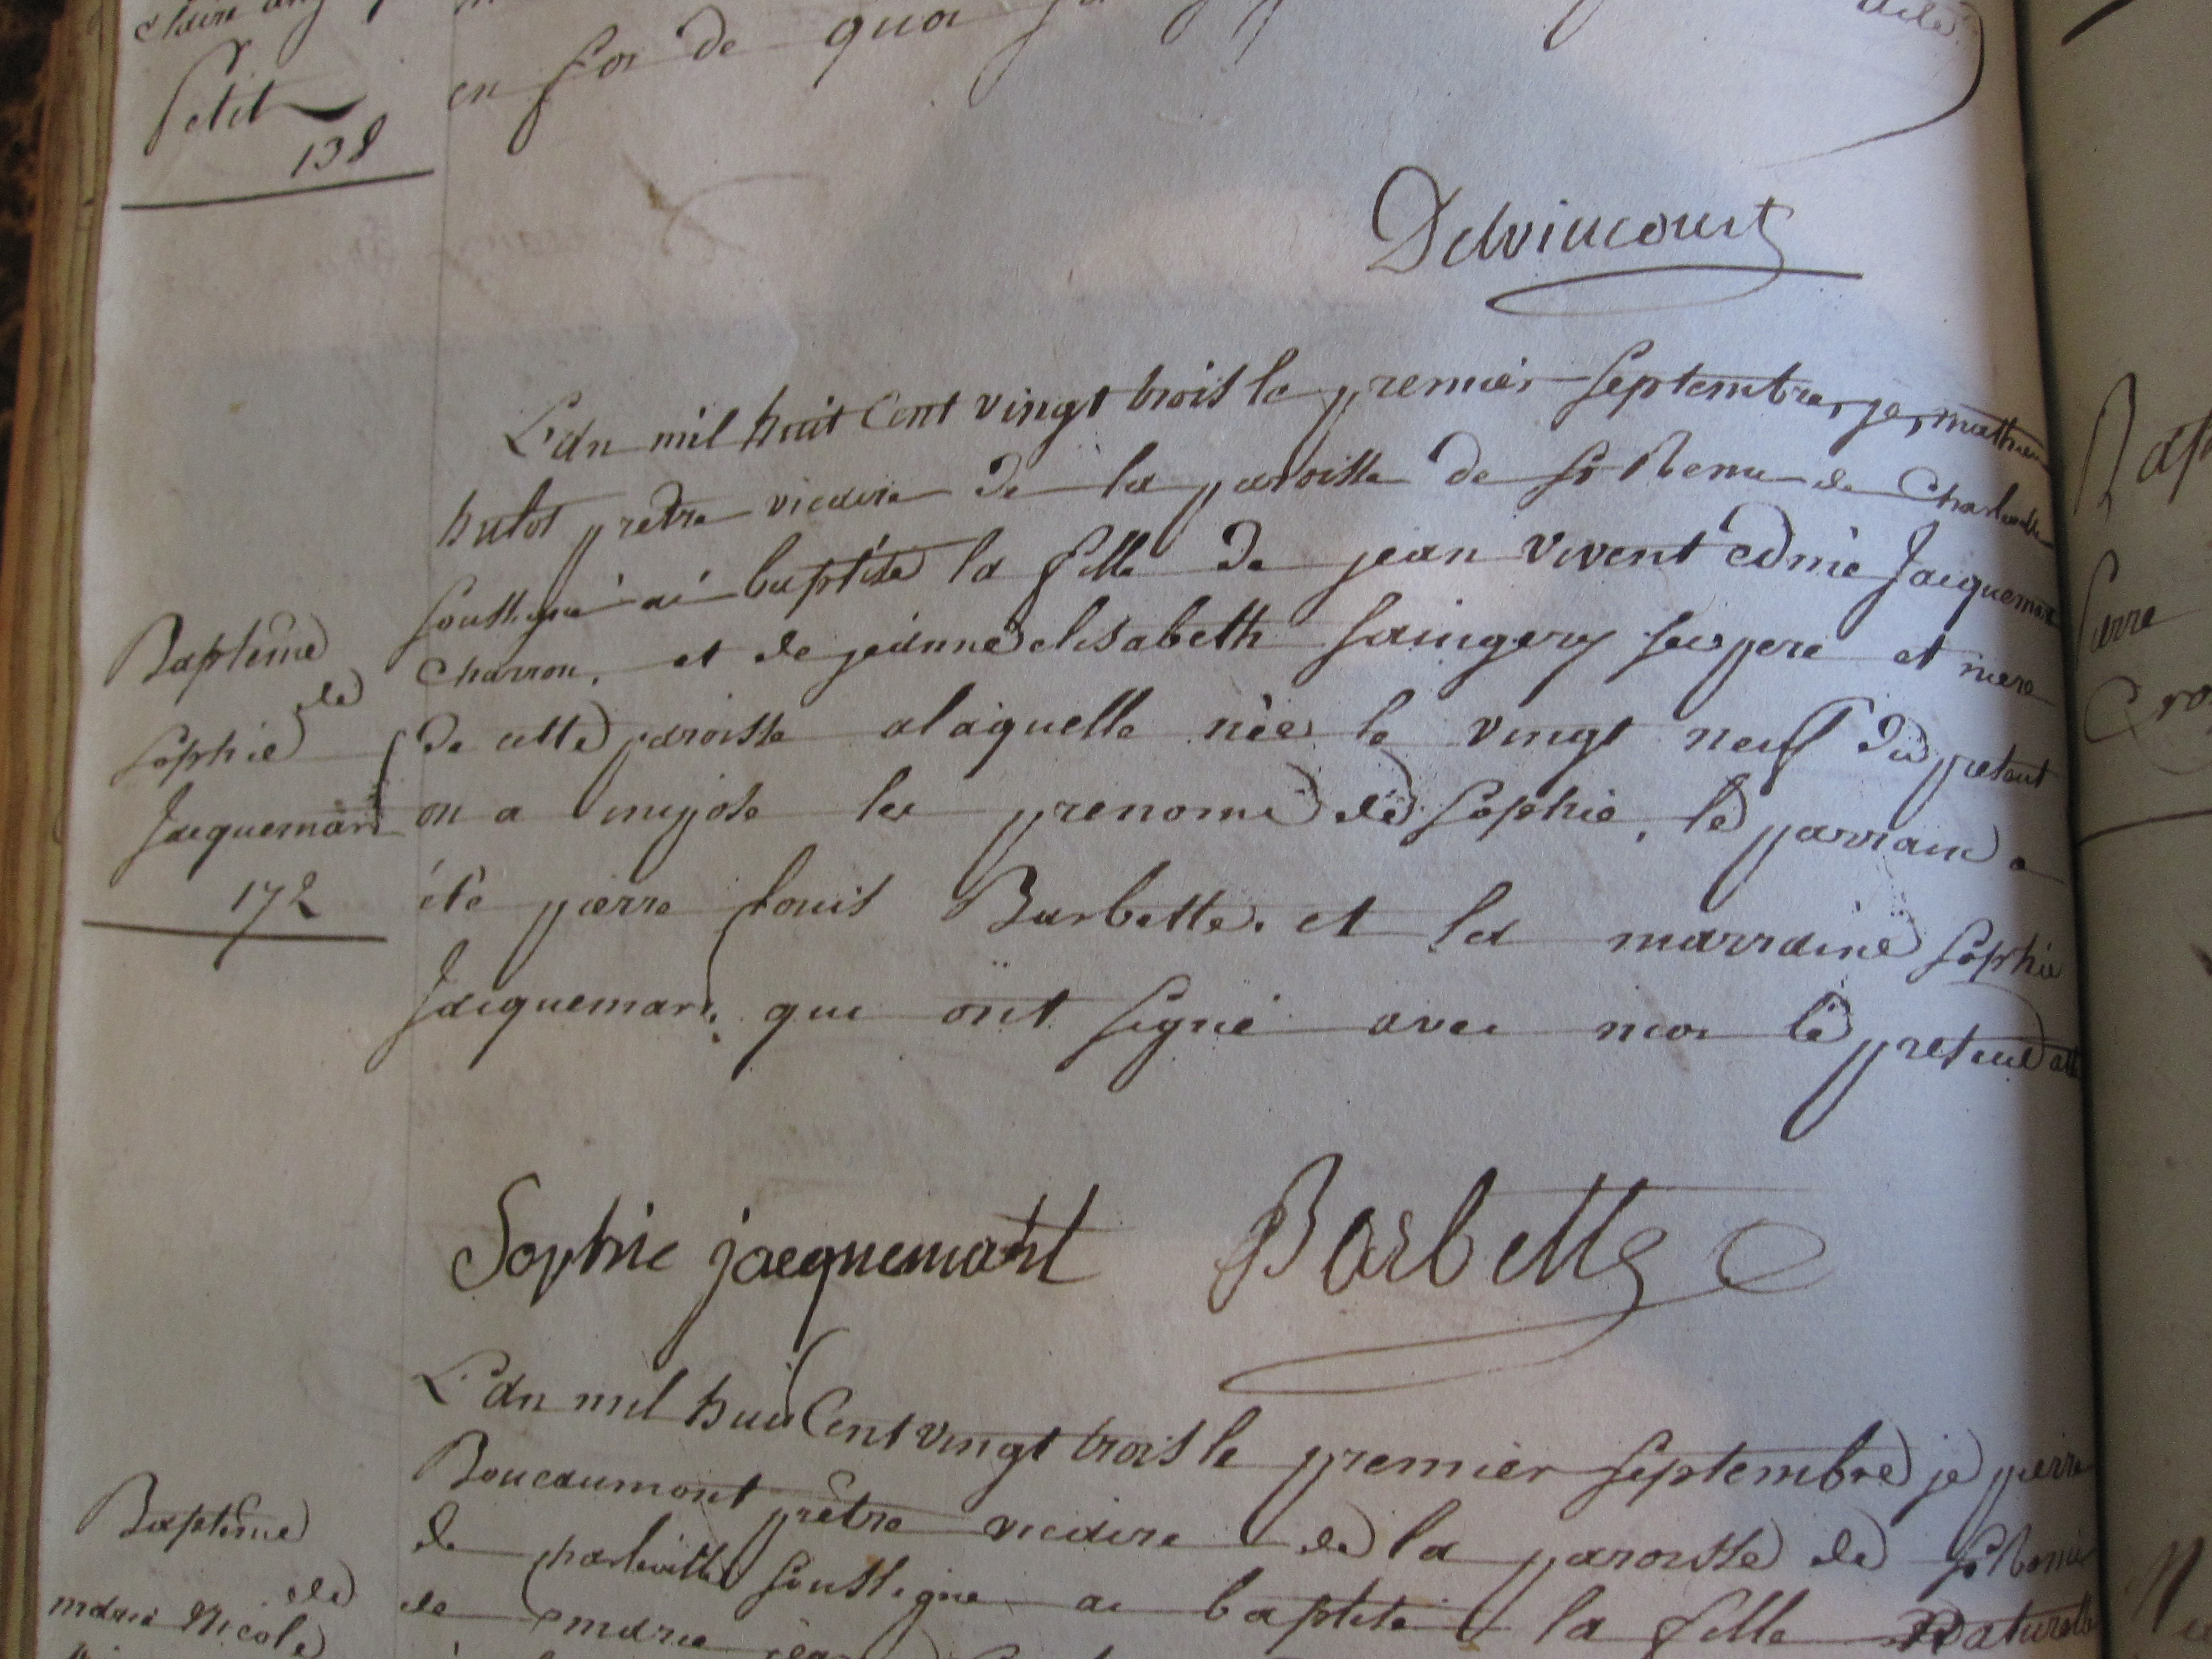 Petit
138
en foi de quoi
acte
Delvincourt
L'an mil huit Cent vingt trois le premier Septembre, je, mathieu
hulot prêtre vicaire de la paroisse de St Remi de Charleville
Soussigné ai baptisé la fille de jean vivent edmé Jacquemart
Charron, et de jeanne elisabeth Saingery ses pere et mere
de cette paroisse a laquelle née le vingt neuf du present
on a imposé les prenoms de Sophie, le parrain a
été pierre Louis Barbette. et la marraine Sophie
Jacquemart, qui ont signé avec moi le present
Baptême
de
Sophie
Jacquemart
172
Sophie jacquemart Barbette
L'an mil huit Cent vingt trois le premier Septembre je pierre
Boucaumont prêtre vicaire de la paroisse de St Remi
de charleville soussigné ai baptisé la fille Naturelle
de marie
Baptême
de
marie Nicole
Bap
Pierre